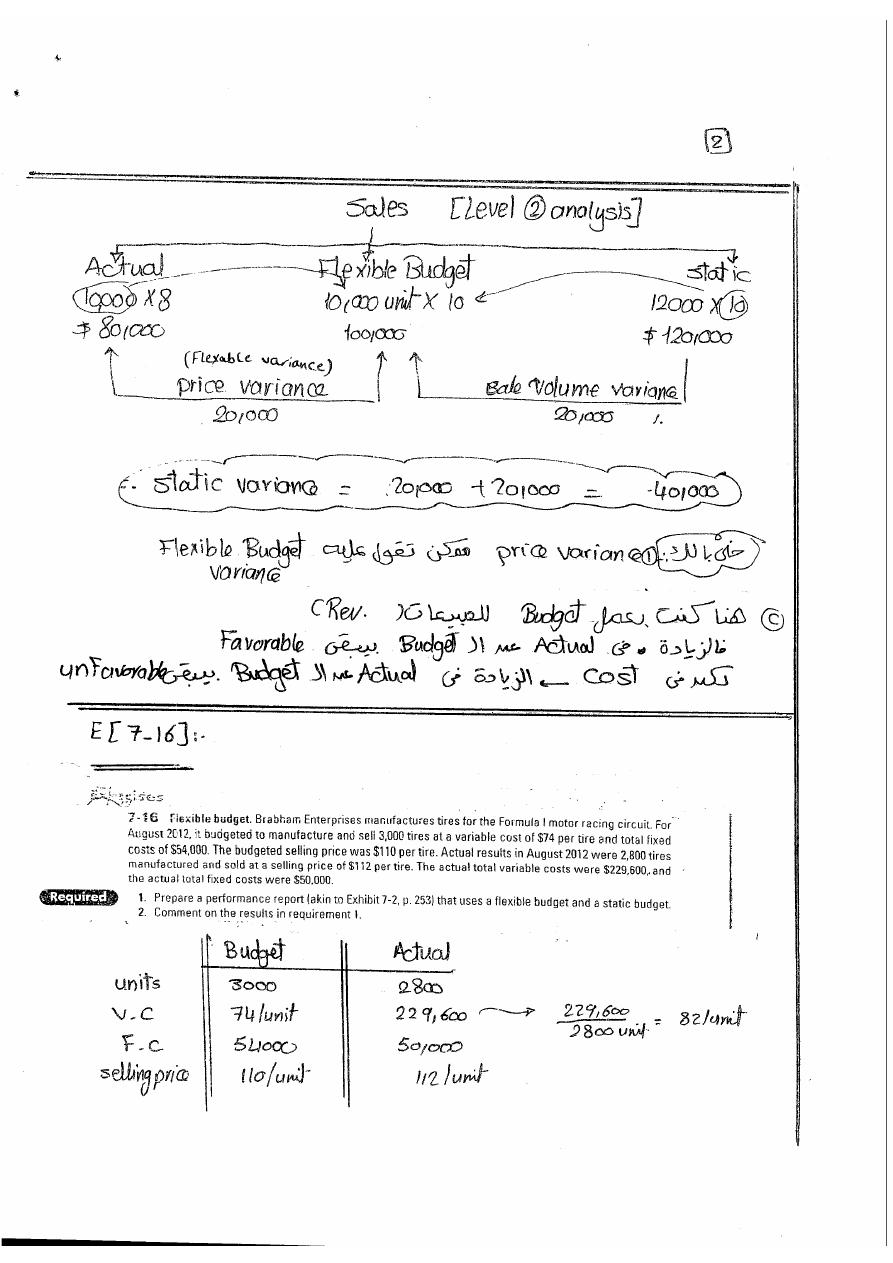 2
Sales [Level ② analysis]
Actual Flexible Budget Static
10,000 X 8 10,000 unit X 10 12000 X 10
$ 80,000 100,000 $ 120,000
(Flexable variance)
price variance Sale Volume variance
20,000 20,000
∴ Static variance = 20,000 + 20,000 = 40,000
خلى بالك: ① price variance ممكن تقول عليه Flexible Budget
variance
Ⓒ هنا كنت بعمل Budget للمبيعات (Rev.
فالزيادة فى Actual عن الـ Budget يبقى Favorable
لكن فى Cost ← الزيادة فى Actual عن الـ Budget يبقى unFavorable
E[7-16]:-
Exercises
7-16 Flexible budget. Brabham Enterprises manufactures tires for the Formula I motor racing circuit. For
August 2012, it budgeted to manufacture and sell 3,000 tires at a variable cost of $74 per tire and total fixed
costs of $54,000. The budgeted selling price was $110 per tire. Actual results in August 2012 were 2,800 tires
manufactured and sold at a selling price of $112 per tire. The actual total variable costs were $229,600, and
the actual total fixed costs were $50,000.
Required 1. Prepare a performance report (akin to Exhibit 7-2, p. 253) that uses a flexible budget and a static budget.
2. Comment on the results in requirement 1.
Budget Actual
units 3000 2800
V.C 74/unit 229,600 → 229,600 / 2800 unit = 82/unit
F.C 54000 50,000
selling price 110/unit 112/unit